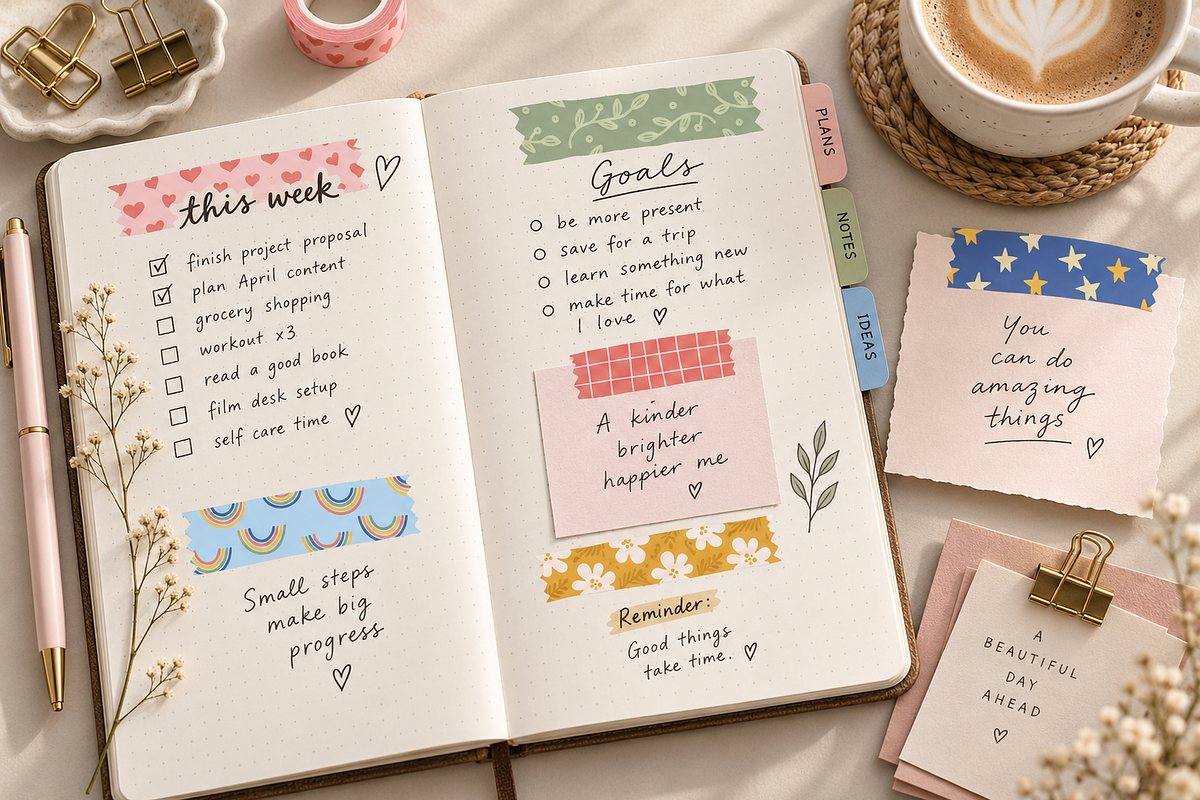 this week
finish project proposal
plan April content
grocery shopping
workout x3
read a good book
film desk setup
self care time
Small steps
make big
progress
Goals
be more present
save for a trip
learn something new
make time for what
I love
A kinder
brighter
happier me
Reminder:
Good things
take time.
PLANS
NOTES
IDEAS
You
can do
amazing
things
A
BEAUTIFUL
DAY
AHEAD